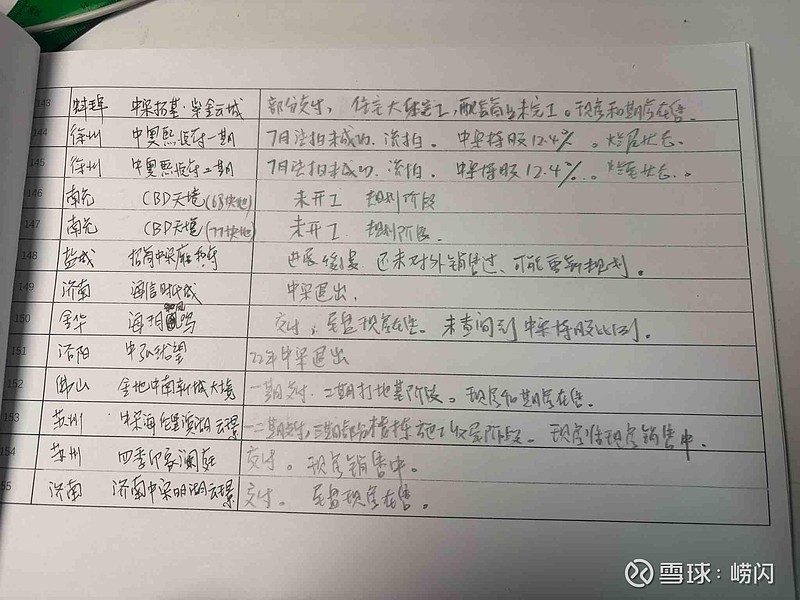 143 蚌埠 中梁拓基·紫金云城 部分交付，住宅大体完工，配套商业未完工。现房和期房在售。
144 徐州 中奥熙悦府一期 7月法拍未成功，流拍。中梁持股12.4%。烂尾状态。
145 徐州 中奥熙悦府二期 7月法拍未成功，流拍。中梁持股12.4%。烂尾状态。
146 南充 CBD天境(68块地) 未开工 规划阶段
147 南充 CBD天境(77块地) 未开工 规划阶段。
148 盐城 招商中梁雍和府 进展缓慢 还未对外销售过，可能重新规划。
149 济南 海信时代城 中梁退出。
150 金华 海玥凤鸣 交付，尾盘现房在售。未查询到中梁持股比例。
151 洛阳 中弘 22年中梁退出
152 佛山 金地中南新城大境 一期交付，二期打地基阶段。现房和期房在售。
153 苏州 滨湖云璟 一二期交付，三期部分楼栋施工收尾阶段。现房准现房销售中。
154 苏州 四季 澜庭 交付。现房销售中。
55 济南 济南中梁明湖云璟 交付。尾盘现房在售。
雪球：崂闪